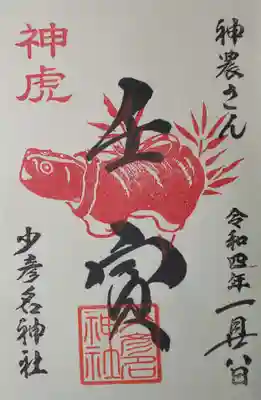 神農さん
令和四年一月八日
壬寅
少彦名
神社
神虎
少彦名神社